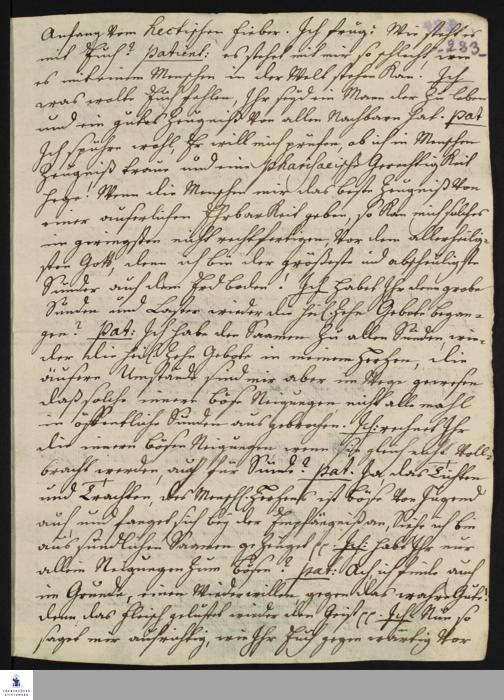 283
Anfang vom Hectischen Fieber. Ich frug: Wie stehet es
mit Euch? Patient: es stehet mit mir so schlecht, wie
es mit einem Menschen in der Welt stehen kan. Ich
was wolte Euch fehlen, Ihr seyd ein Mann der zu leben
und ein gutes Zeugniß von allen Nachbarn hat. Pat
Ich spühre wohl, Er will mich prüfen, ob ich in Menschen
Zeugniß traue und eine Pharisaeische Gerechtigkeit
hege! Wenn die Menschen mir das beste Zeugniß von
einer äuserlichen Ehrbarkeit geben, so kan mich solches
im geringsten nicht rechtfertigen, vor dem allerheilig-
sten Gott, denn ich bin der größeste und abscheuligste
Sünder auf dem Erdboden! Ich habet Ihr denn grobe
Sünden und Laster wieder die heil. Zehn Gebote began-
gen? Pat: Ich habe den Saamen zu allen Sünden wie-
der die heil. Zehn Gebote in meinem Herzen, die
äusere Umstände sind mir aber im Wege gewesen
daß solche innere böse Neigungen nicht alle mahl
in öffentliche Sünden ausgebrochen. Ich: rechnet Ihr
die innern bösen Neigungen wenn sie gleich nicht voll-
bracht werden, auch für Sünde? Pat: Ja, das Tichten
und Trachten, des Menschl. Herzens ist böse von Jugend
auf und fanget sich bey der Empfängniß an, Siehe ich bin
aus sündlichen Saamen gezeuget Ich: habt Ihr nur
allein Neigungen zum bösen? Pat: Ach ich finde auch
im Grunde, einen Wiederwillen gegen das wahre Gute!
denn das Fleisch gelüstet wieder den Geist Ich: Nun so
saget mir aufrichtig, wie Ihr Euch gegenwärtig vor
FRANCKESCHE
STIFTUNGEN